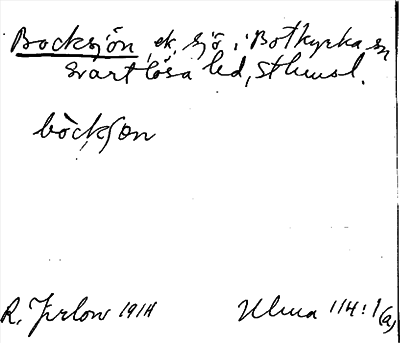 Bocksjön, ek, sjö i Botkyrka sn
Svartlösa hd, Sthmsl.
bòckſo̤n
R. 1914
Ulma 114:1(a)